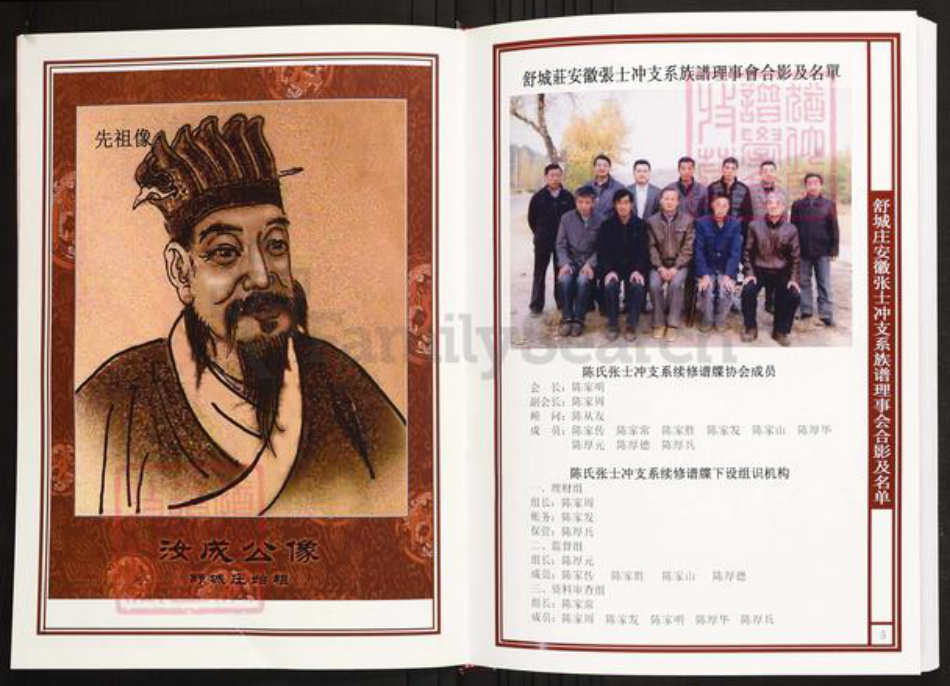 先祖像
汝成公像
舒城庄始祖
舒城莊安徽張士冲支系族譜理事會合影及名單
陈氏张士冲支系续修谱牒协会成员
会　长：陈家明
副会长：陈家周
顾　问：陈从友
成　员：陈家传　陈家常　陈家胜　陈家发　陈家山　陈厚华
陈厚元　陈厚德　陈厚兵
陈氏张士冲支系续修谱牒下设组识机构
一、理财组
组长：陈家周
账务：陈家发
保管：陈厚兵
二、监督组
组长：陈厚元
成员：陈家传　陈家胜　陈家山　陈厚德
三、资料审查组
组长：陈家常
成员：陈家周　陈家发　陈家明　陈厚华　陈厚兵
舒城庄安徽张士冲支系族谱理事会合影及名单
5
FamilySearch